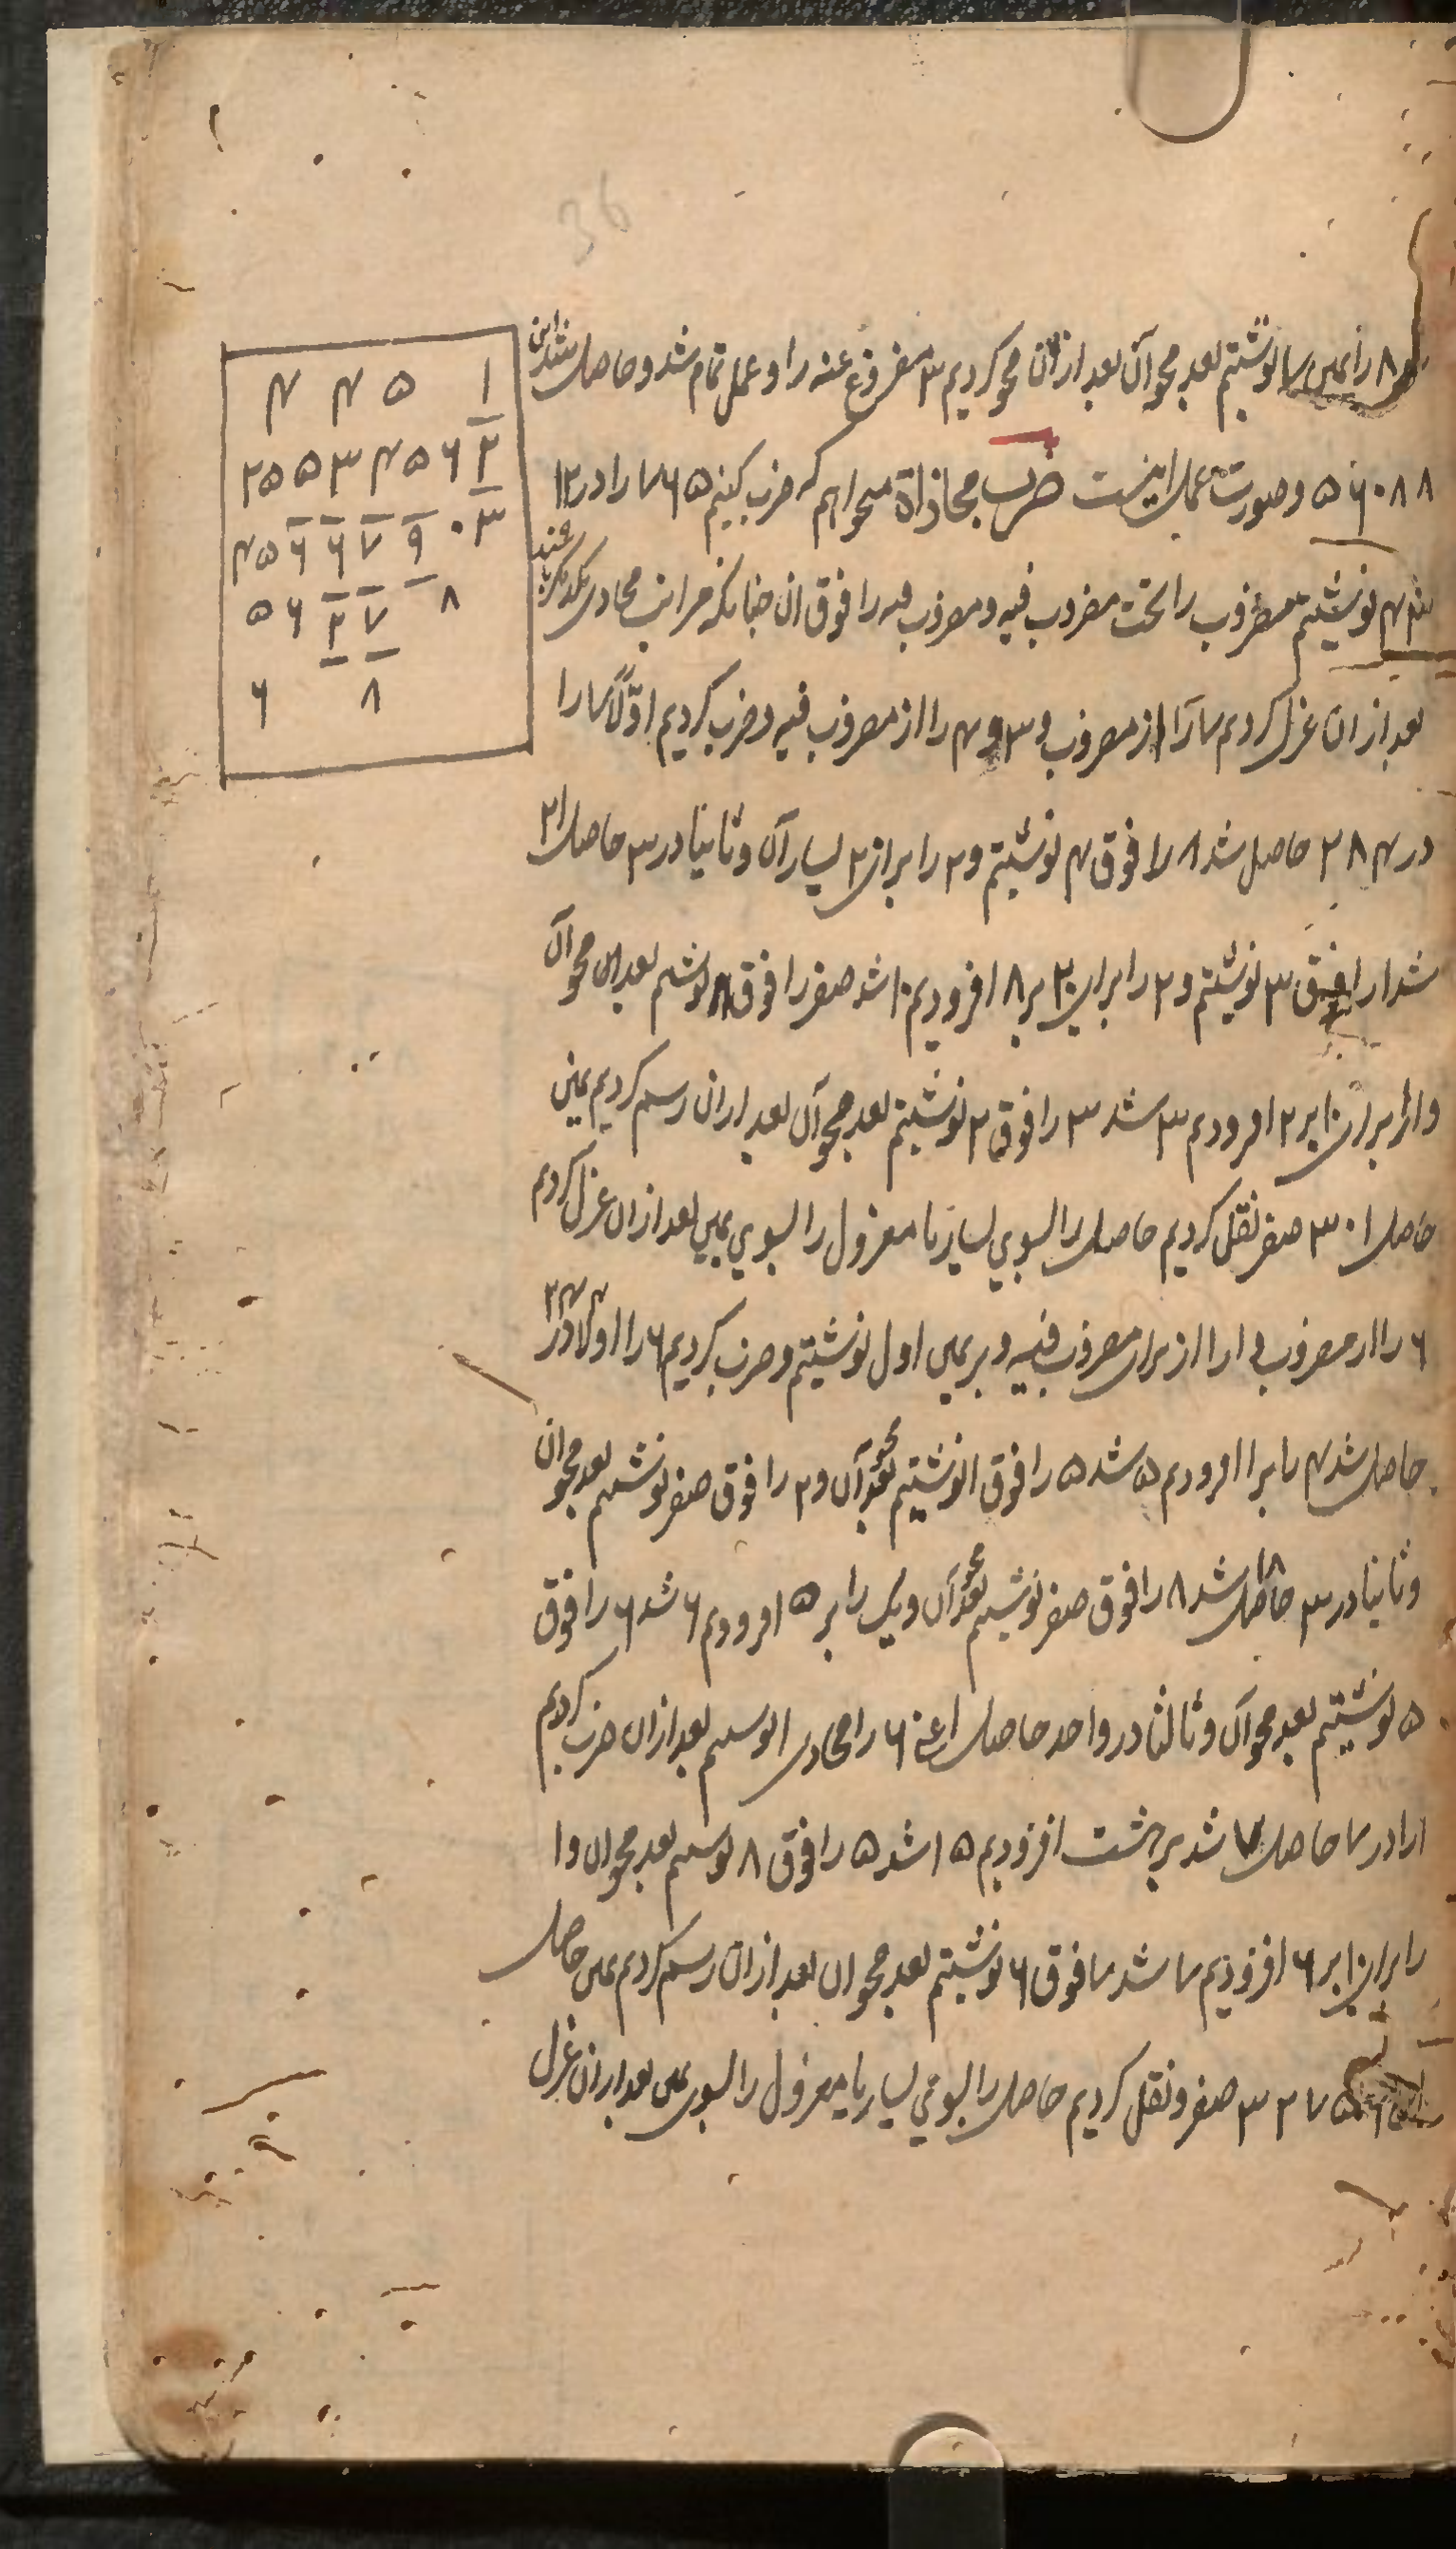 36
۸ را یمین نوشتیم بعد محو آن بعد ازان محو کردیم ۳ مفروغ عنه را و عمل تمام شد و حاصل شد این
۵۶۰۸۸ و صورت عمل اینست ضرب محاذاة میخواهیم که ضرب کنیم ۷۶۵ را در ۱۲
۳۴ نوشتیم مضروب را تحت مضروب فیه و مضروب فیه را فوق ان چنانکه مراتب محاذی یکدیگر باشند
بعد ازان عزل کردیم ۷ را از مضروب و ۳ و ۴ را از مضروب فیه و ضرب کردیم اولا ۷ را
در ۴ ۲۸ حاصل شد ۸ را فوق ۴ نوشتیم و ۲ را برای ۲۰ یسار آن و ثانیا در ۳ حاصل ۲۱
شد ا را فوق ۳ نوشتیم و ۲ را برای ۲۰ بر ۸ افزودیم ۱۰ شد صفر را فوق ۸ نوشتیم بعد محو آن
و ا را برای ۱۰ بر ۲ افزودیم ۳ شد ۳ را فوق ۲ نوشتیم بعد محو آن بعد ازان رسم کردیم یمین
حاصل ۳۰۱ صفر نقل کردیم حاصل را بسوی یسار یا معزول را بسوی یمین بعد ازان عزل کردیم
۶ را از مضروب و ا را از برای مضروب فیه و بر یمین اول نوشتیم و ضرب کردیم ۶ را اولا در ۴ ۲۴
حاصل شد ۴ را بر ا افزودیم ۵ شد ۵ را فوق ا نوشتیم بعد محو آن و ۲ را فوق صفر نوشتیم بعد محو ان
و ثانیا در ۳ ۱۸ حاصل شد ۸ را فوق صفر نوشتیم بعد محو آن و یک را بر ۵ افزودیم ۶ شد ۶ را فوق
۵ نوشتیم بعد محو آن و ثالثا در واحد حاصل اعنی ۶ را محاذی ا نوشتیم بعد ازان ضرب کردیم
ا را در ۷ حاصل ۷ شد بر هشت افزودیم ۱۵ شد ۵ را فوق ۸ نوشتیم بعد محو ان و ا
را برای ۱۰ بر ۶ افزودیم ۷ شد ۷ فوق ۶ نوشتیم بعد محو ان بعد ازان رسم کردیم یمین حاصل
۳۲۷۵۶ صفر و نقل کردیم حاصل را بسوی یسار یا معزول را بسوی یمین بعد ازان عزل
۴ ۴ ۵ ۱
۲ ۵ ۵ ۳ ۴ ۵ ۶ ۲
۴ ۵ ۶ ۶ ۷ ۹ ۰ ۳
۵ ۶ ۲ ۷ ۸
۶ ۸